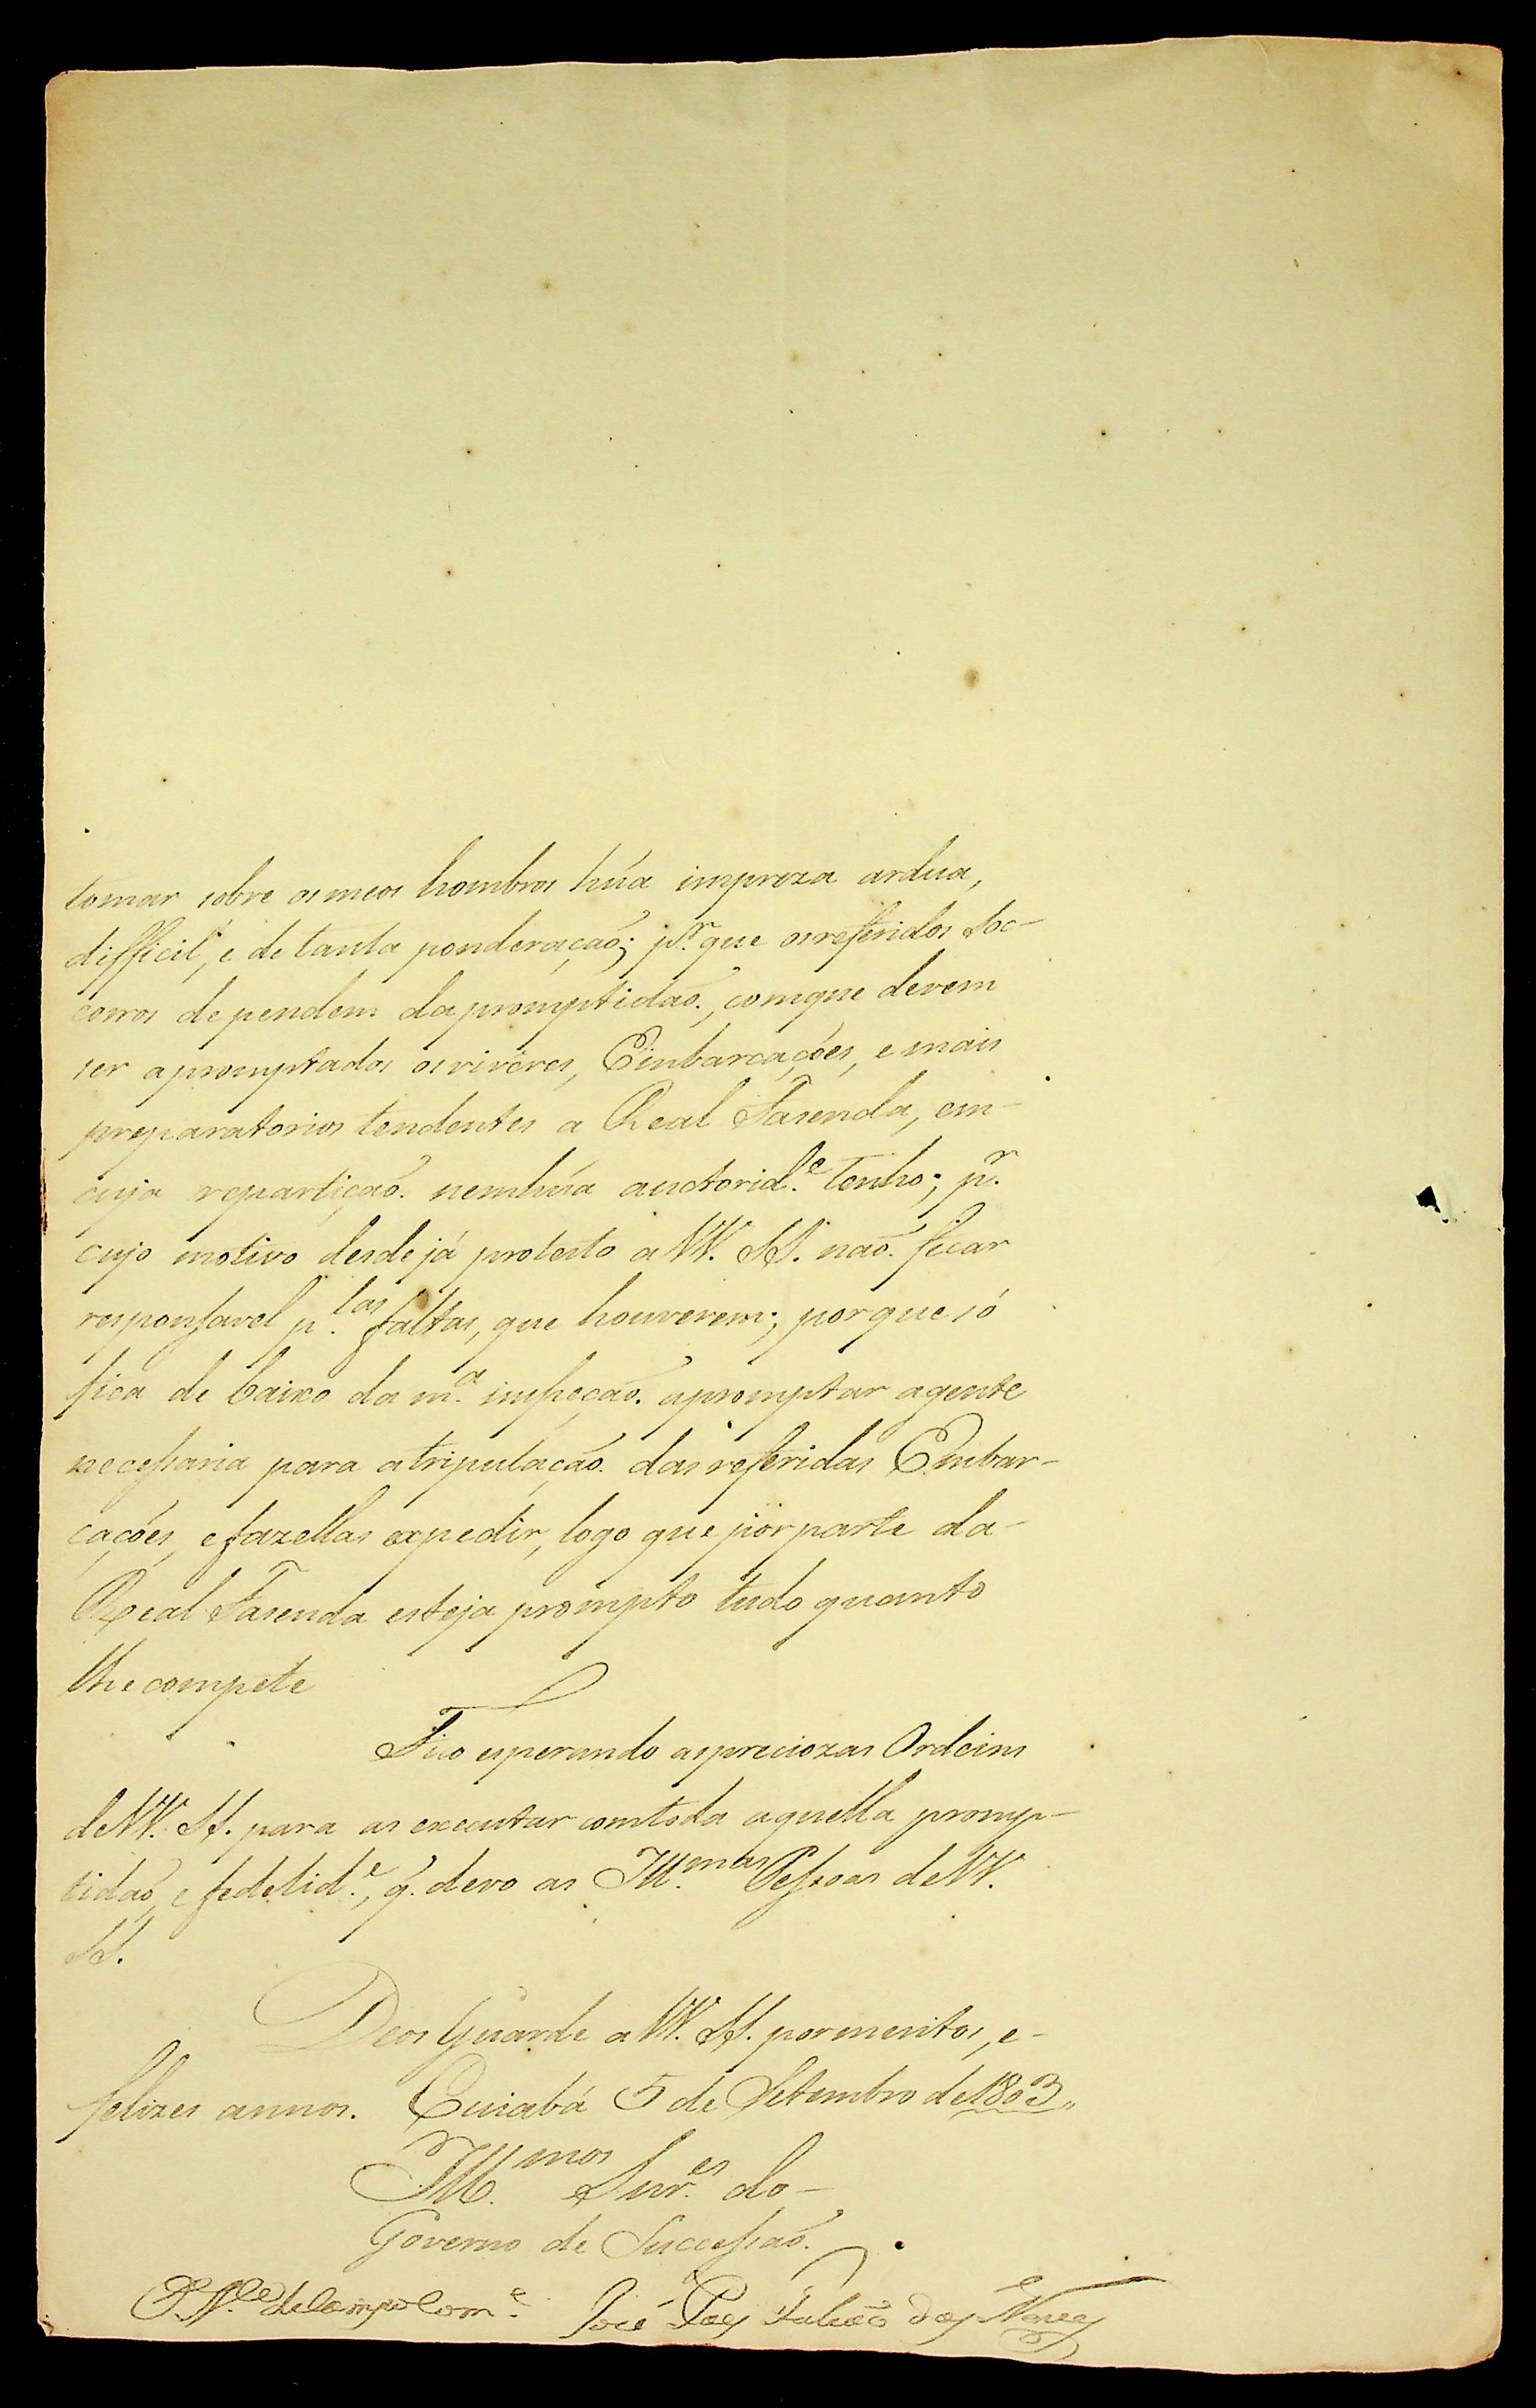 tomar sobre os meos hombros húa impreza ardua,
difficil, e de tanta ponderação; p.r que os referidos Soc-
corros dependem da promptidaõ, com que devem
ser apromptados os viveres, Embarcações, e mais
preparatorios tendentes a Real Fasenda, em-
cuja repartiçaõ. nemhúa auctorid.e tenho; p.r
cujo motivo desde já protesto a VV. SS. naõ. ficar
responsavel p.las faltas, que houverem; porque só
fica de baixo da m.a inspeçaõ. apromptar agente
necessaria para atripulaçaõ. das referidas Embar-
cações, e fazellas expedir, logo que por parte da-
Real Fasenda esteja prompto tudo quanto
lhe compete
Fico esperando as preciozas Ordeins
de VV. SS. para as executar com toda aquella promp-
tidaõ, e fedelid.e, q. devo as Ill.mas Pessoas de VV.
SS.
Deos Guarde a VV. SS. por meritos, e-
felizes annos. Cuiabá 5 de Setembro de 1803,,
Ill.mos Snr.es do-
Governo de Successaõ.
de Campo Com.e José Paes Falcaõ das Neves